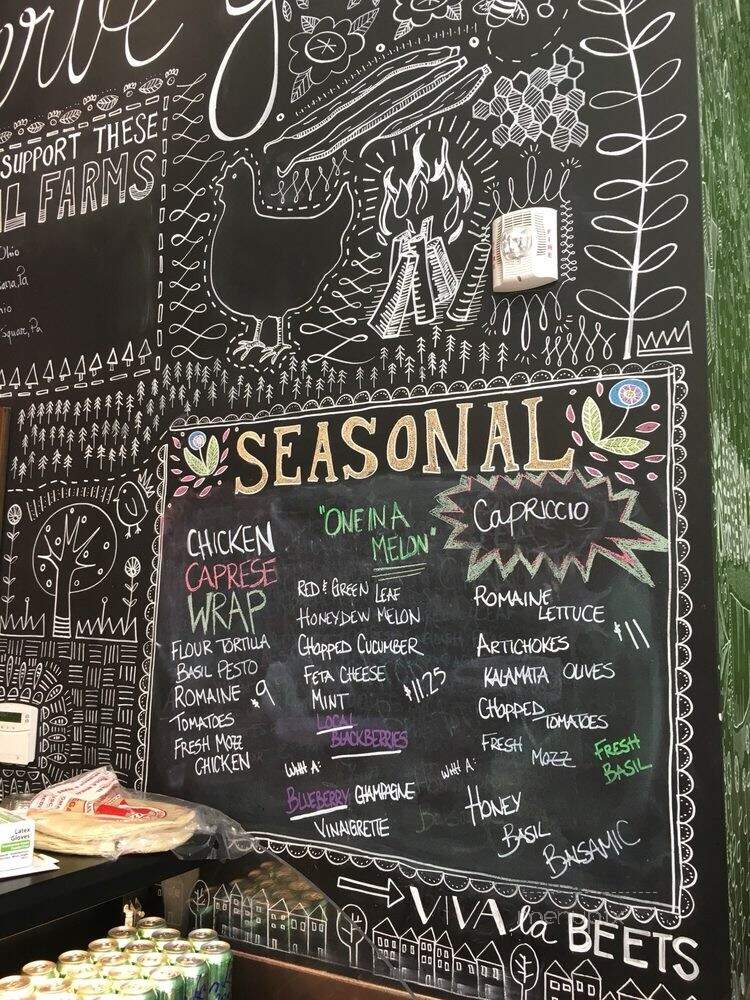 SUPPORT THESE
L FARMS
Ohio
ana, Pa
hio
Square, Pa
FIRE
SEASONAL
CHICKEN
CAPRESE
WRAP
FLOUR TORTILLA
BASIL PESTO
ROMAINE $9
TOMATOES
FRESH MOZZ
CHICKEN
"ONE IN A
MELON"
RED & GREEN LEAF
HONEYDEW MELON
CHOPPED CUCUMBER
FETA CHEESE
MINT $11.25
LOCAL
BLACKBERRIES
WITH A:
BLUEBERRY CHAMPAGNE
VINAIGRETTE
CAPRICCIO
ROMAINE
LETTUCE
$11
ARTICHOKES
KALAMATA OLIVES
CHOPPED
TOMATOES
FRESH MOZZ
FRESH
BASIL
WITH A:
HONEY
BASIL
BALSAMIC
Latex
Gloves
VIVA la BEETS